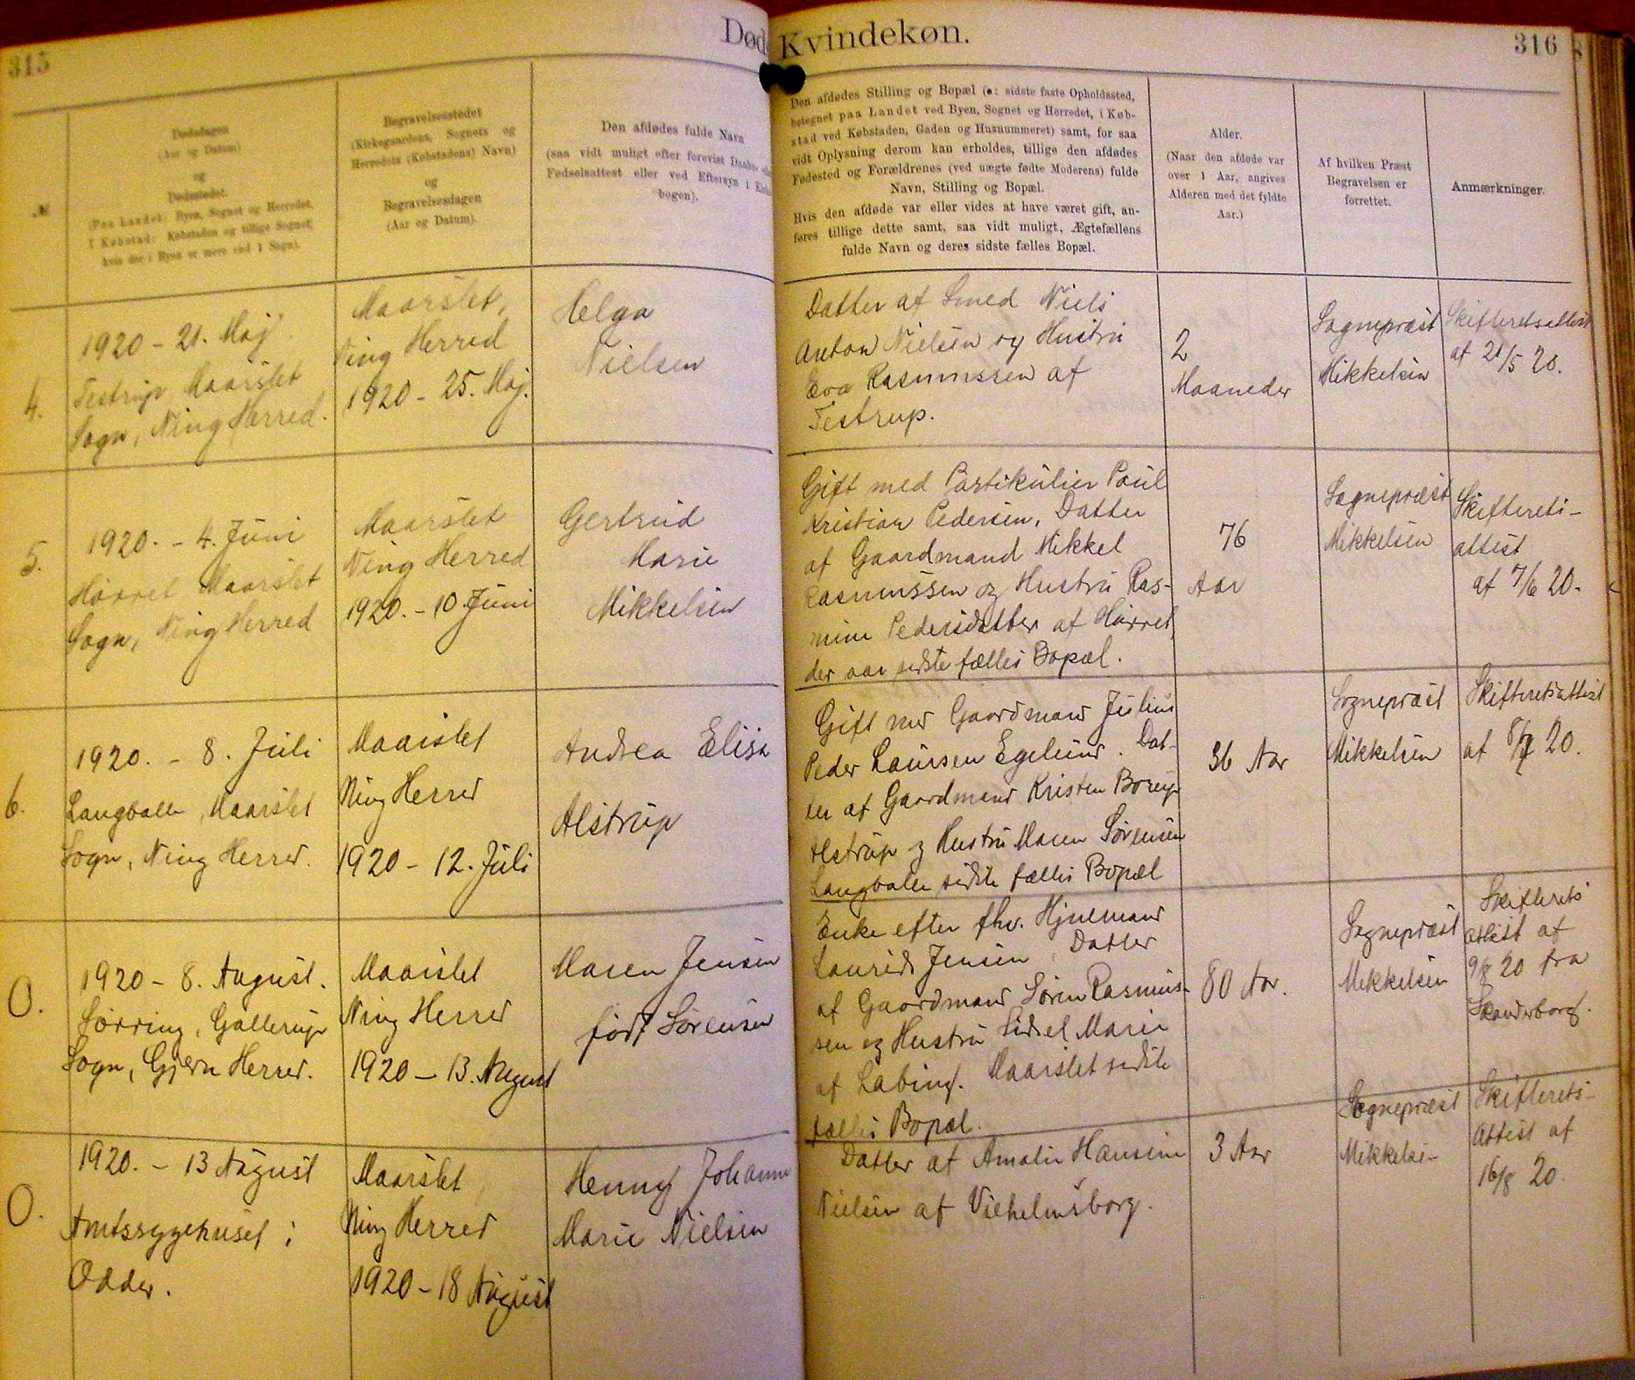 315
Død
Kvindekøn.
316
№
Dødsdagen
(Aar og Datum)
og
Dødsstedet.
(Paa Landet: Byen, Sognet og Herredet,
I Købstad: Købstaden og tillige Sognet,
hvis der i Byen er mere end 1 Sogn).
Begravelsesstedet
(Kirkegaardens, Sognets og
Herredets (Købstadens) Navn)
og
Begravelsesdagen
(Aar og Datum).
Den afdødes fulde Navn
(saa vidt muligt efter forevist Daabs-
Fødselsattest eller ved Eftersyn i
bogen).
Den afdødes Stilling og Bopæl (ɔ: sidste faste Opholdssted,
betegnet paa Landet ved Byen, Sognet og Herredet, i Køb-
stad ved Købstaden, Gaden og Husnummeret) samt, for saa
vidt Oplysning derom kan erholdes, tillige den afdødes
Fødested og Forældrenes (ved uægte fødte Moderens) fulde
Navn, Stilling og Bopæl.
Hvis den afdøde var eller vides at have været gift, an-
føres tillige dette samt, saa vidt muligt, Ægtefællens
fulde Navn og deres sidste fælles Bopæl.
Alder.
(Naar den afdøde var
over 1 Aar, angives
Alderen med det fyldte
Aar.)
Af hvilken Præst
Begravelsen er
forrettet.
Anmærkninger.
4.
1920 - 21. Maj
Testrup, Maarslet
Sogn, Ning Herred.
Maarslet,
Ning Herred
1920 - 25. Maj.
Helga
Nielsen
Datter af Smed Niels
Anton Nielsen og Hustru
Eva Rasmussen af
Testrup.
2
Maaneder
Sognepræst
Mikkelsen
Skifteretsattest
af 21/5 20.
5.
1920. - 4. Juni
Hørret Maarslet
Sogn, Ning Herred
Maarslet
Ning Herred
1920. - 10. Juni
Gertrud
Marie
Mikkelsen
Gift med Partikulier Poul
Kristian Pedersen, Datter
af Gaardmand Mikkel
Rasmussen og Hustru Ras-
mine Pedersdatter af Hørret,
der var sidste fælles Bopæl.
76
Aar
Sognepræst
Mikkelsen
Skifterets-
attest
af 7/6 20.
6.
1920. - 8. Juli
Langballe, Maarslet
Sogn, Ning Herred.
Maarslet
Ning Herred
1920 - 12. Juli
Andrea Elise
Alstrup
Gift med Gaardmand Julius
Peder Laursen Egelund. Dat-
ter af Gaardmand Kristen Borup
Alstrup og Hustru Maren Sørensen
Langballe sidste fælles Bopæl
36 Aar
Sognepræst
Mikkelsen
Skifteretsattest
af 8/7 20.
O.
1920 - 8. August.
Sørring, Gallerup
Sogn, Gjern Herred.
Maarslet
Ning Herred
1920 - 13. August
Maren Jensen
født Sørensen
Enke efter fhv. Hjulmand
Laurids Jensen, Datter
af Gaardmand Søren Rasmus-
sen og Hustru Sidsel Marie
af Labing. Maarslet sidste
fælles Bopæl.
80 Aar.
Sognepræst
Mikkelsen
Skifterets
attest af
9/8 20 fra
Skanderborg.
O.
1920. - 13 August
Amtssygehuset i
Odder.
Maarslet
Ning Herred
1920 - 18 August
Henny Johanne
Marie Nielsen
Datter af Amalie Hansine
Nielsen af Vilhelmsborg.
3 Aar
Sognepræst
Mikkelsen
Skifterets-
Attest af
16/8 20.